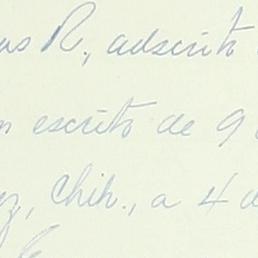 us R., adscrito
n escrito de 9
ez, Chih., a 4 d